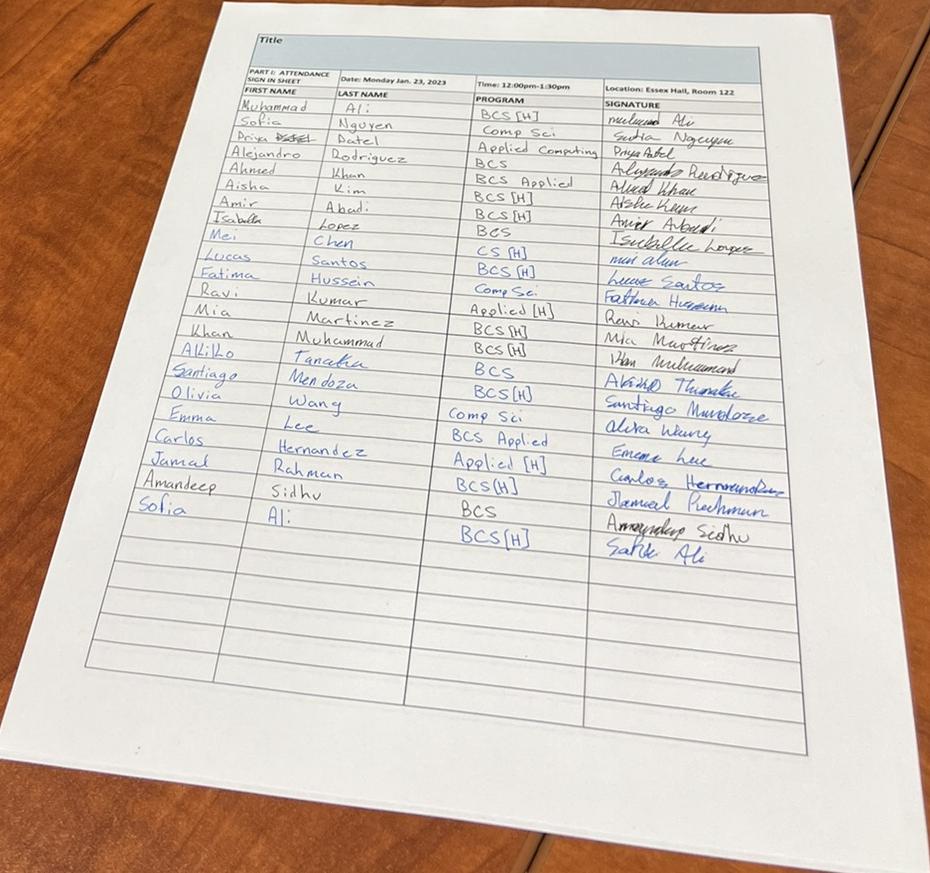 Title
PART I: ATTENDANCE SIGN IN SHEET Date: Monday Jan. 23, 2023 Time: 12:00pm-1:30pm Location: Essex Hall, Room 122
FIRST NAME LAST NAME PROGRAM SIGNATURE
Muhammad Ali BCS [H] Ali
Sofia Nguyen Comp Sci Sofia Nguyen
Priya Patel Applied Computing Priya Patel
Alejandro Rodriguez BCS Alejandro Rodriguez
Ahmed Khan BCS Applied Ahmed Khan
Aisha Kim BCS [H] Aisha Kim
Amir Abadi BCS [H] Amir Abadi
Isabella Lopez BCS Isabella Lopez
Mei Chen CS [H]
Lucas Santos BCS [H] Lucas Santos
Fatima Hussein Comp Sci Fatima Hussein
Ravi Kumar Applied [H] Ravi Kumar
Mia Martinez BCS [H] Mia Martinez
Khan Muhammad BCS [H] Khan Muhammad
Akiko Tanaka BCS Akiko
Santiago Mendoza BCS [H] Santiago Mendoza
Olivia Wang Comp Sci Wang
Emma Lee BCS Applied Emma Lee
Carlos Hernandez Applied [H] Carlos Hernandez
Jamal Rahman BCS [H]
Amandeep Sidhu BCS Amandeep Sidhu
Sofia Ali BCS [H] Ali